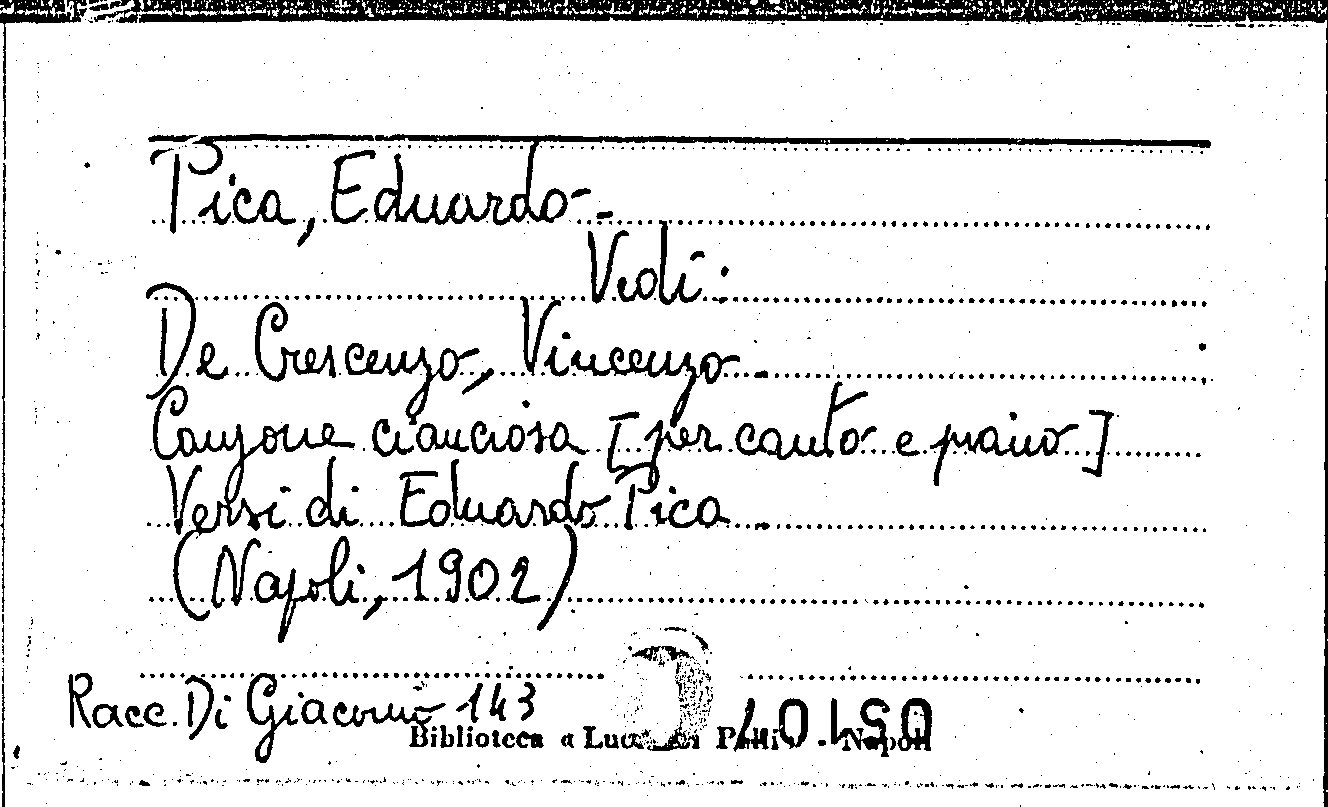 Pica, Eduardo-.
Vedi:
De Crescenzo, Vincenzo.
Canzone cianciosa [per canto e piano]
Versi di Eduardo Pica.
(Napoli, 1902)
Racc. Di Giacomo 143
Biblioteca « Lucchesi Palli » - Napoli